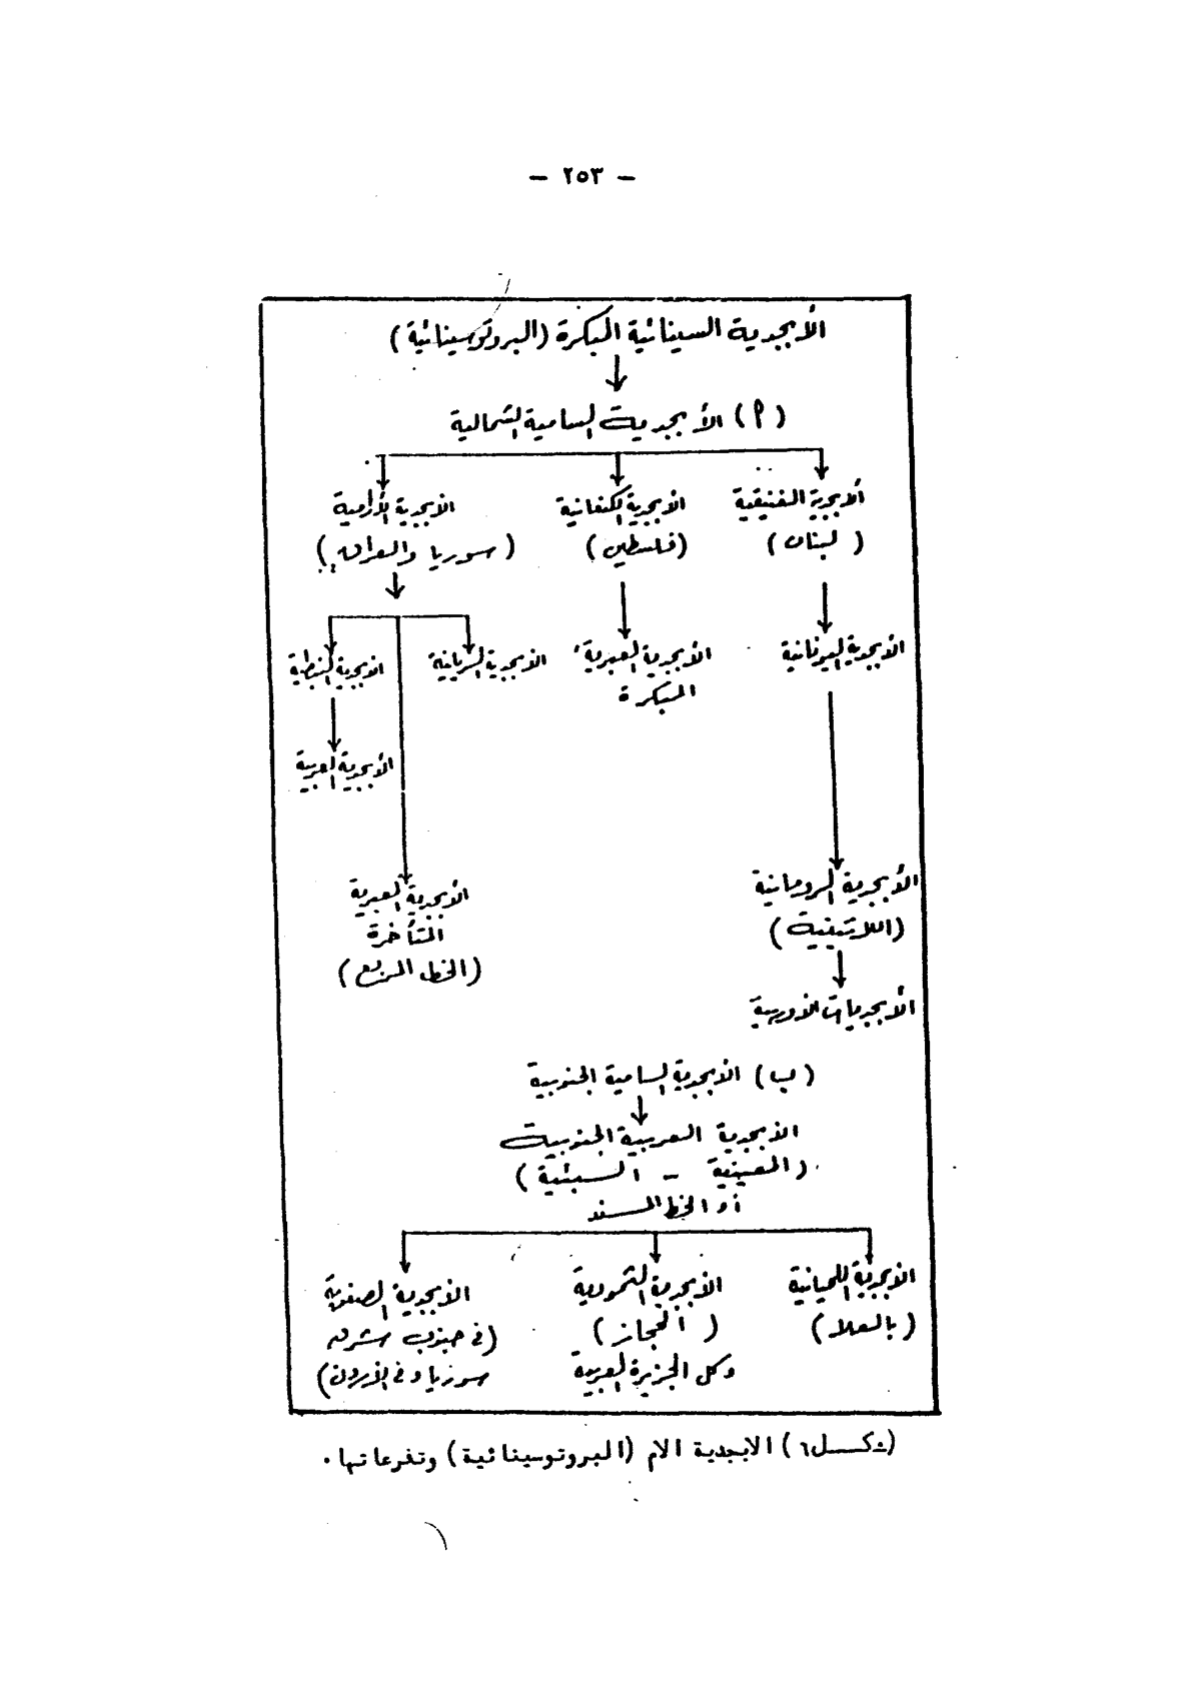 - ٢٥٣ -
الأبجدية السينائية المبكرة (البروتوسينائية)
(أ) الأبجدية السامية الشمالية
الأبجدية الفنيقية
(لبنان)
الأبجدية الكنعانية
(فلسطين)
الأبجدية الأرامية
(سوريا والعراق)
الأبجدية اليونانية
الأبجدية العبرية
المبكرة
الأبجدية السريانية
الأبجدية النبطية
الأبجدية العربية
الأبجدية الرومانية
(اللاتينية)
الأبجدية العبرية
المتأخرة
(الخط المربع)
الأبجديات الأوربية
(ب) الأبجدية السامية الجنوبية
الأبجدية العربية الجنوبية
(المعينية - السبئية)
أو الخط المسند
الأبجدية اللحيانية
(بالعلا)
الأبجدية الثمودية
(الحجاز)
وكل الجزيرة العربية
الأبجدية الصفوية
(في جنوب شرق
سوريا وفي الأردن)
(شكل ٦) الابجدية الام (البروتوسينائية) وتفرعاتها .